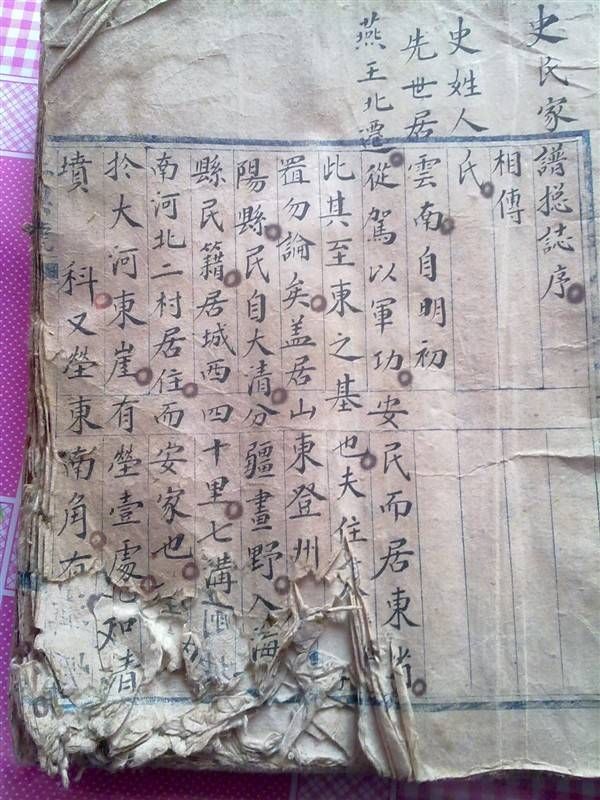 史氏家譜揔誌序
相傳
史姓人氏
先世居雲南自明初
燕王北遷從駕以軍功安民而居東省
此其至東之基也夫住
置勿論矣盖居山東登州
陽縣民自大清分疆畫野入海
縣民籍居城西四十里七溝
南河北二村居住而安家也
扵大河東崖有塋壹處如清
墳 科又塋東南角有